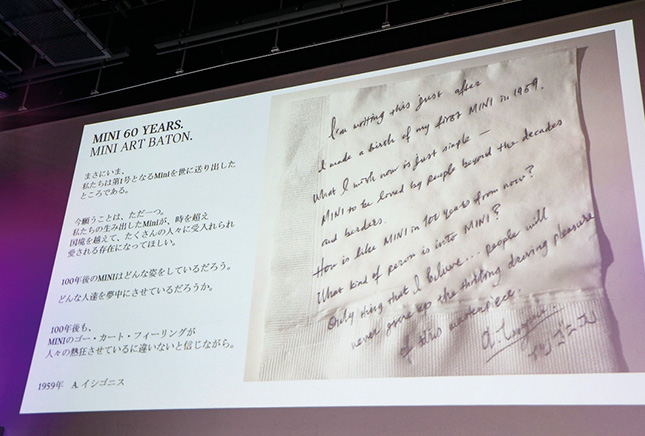 MINI 60 YEARS.
MINI ART BATON.
まさにいま、
私たちは第1号となるMiniを世に送り出した
ところである。
今願うことは、ただ一つ。
私たちの生み出したMiniが、時を超え
国境を越えて、たくさんの人々に受入れられ
愛される存在になってほしい。
100年後のMINIはどんな姿をしているだろう。
どんな人達を夢中にさせているだろうか。
100年後も、
MINIのゴー・カート・フィーリングが
人々の熱狂させているに違いないと信じながら。
1959年 A. イシゴニス
I'm writing this just after
I made a birth of my first MINI in 1959.
What I wish now is just simple –
MINI to be loved by people beyond the decades
and borders.
How is like MINI in 100 years from now?
What kind of person is into MINI?
Only thing that I believe... people will
never give up the driving pleasure
of this masterpiece.
イシゴニス